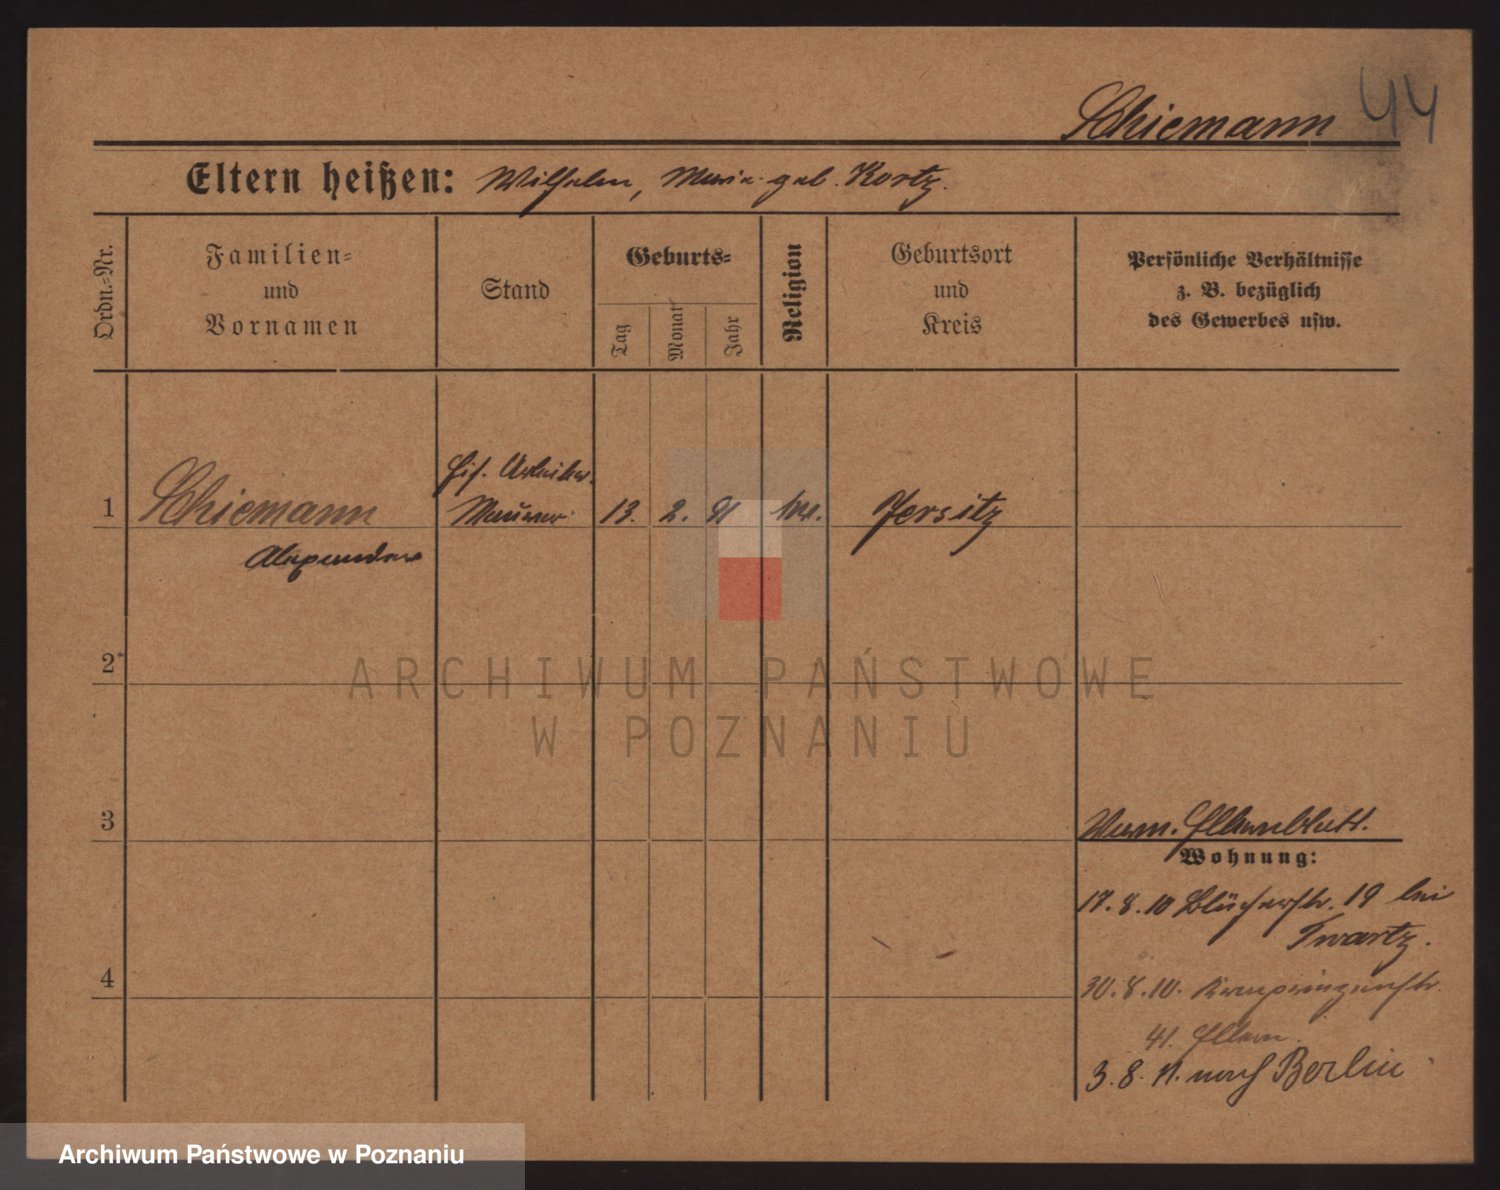 Schiemann 44
Eltern heißen: Wilhelm, Maria geb. Kortz.
Ordn.=Nr.
Familien=
und
Vornamen
Stand
Geburts=
Tag
Monat
Jahr
Religion
Geburtsort
und
Kreis
Persönliche Verhältnisse
z. B. bezüglich
des Gewerbes usw.
Arbeiter.
1 Schiemann Maurer 13. 2. 91 Jersitz
Alexander
2
ARCHIWUM PAŃSTWOWE
W POZNANIU
3
Elternblatt.
Wohnung:
17.8.10 Blücherstr. 19 bei
Twartz.
4
30.8.10. Kronprinzenstr.
41. Eltern.
3.8.11. nach Berlin
Archiwum Państwowe w Poznaniu